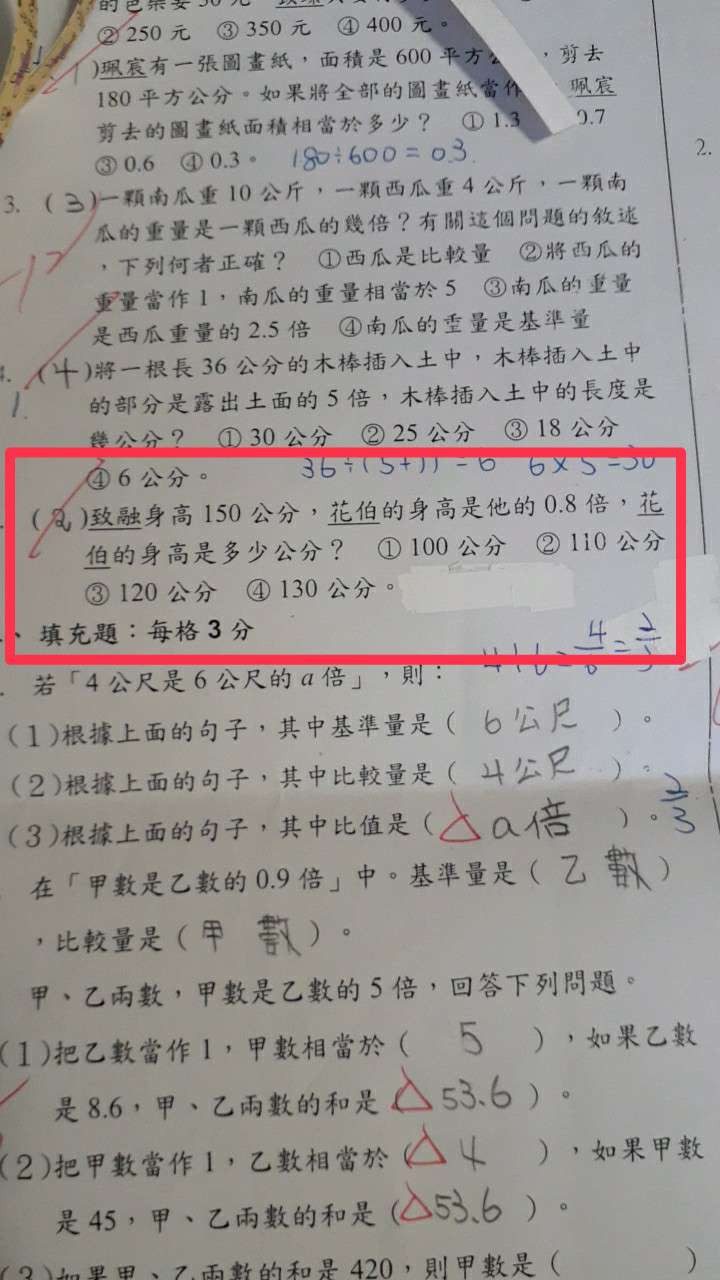 ② 250 元 ③ 350 元 ④ 400 元。
)珮宸有一張圖畫紙,面積是 600 平方公,剪去
180 平方公分。如果將全部的圖畫紙當作 珮宸
剪去的圖畫紙面積相當於多少? ① 1.3 0.7
③ 0.6 ④ 0.3。 180÷600=0.3
3. (3)一顆南瓜重 10 公斤,一顆西瓜重 4 公斤,一顆南
瓜的重量是一顆西瓜的幾倍?有關這個問題的敘述
,下列何者正確? ①西瓜是比較量 ②將西瓜的
重量當作 1,南瓜的重量相當於 5 ③南瓜的重量
是西瓜重量的 2.5 倍 ④南瓜的重量是基準量
(4)將一根長 36 公分的木棒插入土中,木棒插入土中
的部分是露出土面的 5 倍,木棒插入土中的長度是
幾公分? ① 30 公分 ② 25 公分 ③ 18 公分
④ 6 公分。 36÷(5+1)=6 6×5=30
(2)致融身高 150 公分,花伯的身高是他的 0.8 倍,花
伯的身高是多少公分? ① 100 公分 ② 110 公分
③ 120 公分 ④ 130 公分。
、填充題:每格 3 分
若「4 公尺是 6 公尺的 a 倍」,則: 4÷6=4/6=2/3
(1)根據上面的句子,其中基準量是( 6公尺 )。
(2)根據上面的句子,其中比較量是( 4公尺 )。
(3)根據上面的句子,其中比值是( a倍 )。 2/3
在「甲數是乙數的 0.9 倍」中。基準量是( 乙數 )
,比較量是( 甲數 )。
甲、乙兩數,甲數是乙數的 5 倍,回答下列問題。
(1)把乙數當作 1,甲數相當於( 5 ),如果乙數
是 8.6,甲、乙兩數的和是( 53.6 )。
(2)把甲數當作 1,乙數相當於( 4 ),如果甲數
是 45,甲、乙兩數的和是( 53.6 )。
(3)如果甲、乙兩數的和是 420,則甲數是( )
2.